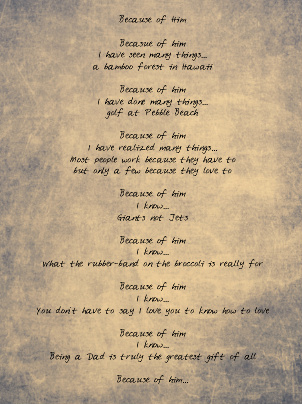 Because of Him
Becasue of him
I have seen many things...
a bamboo forest in Hawaii
Because of him
I have done many things...
golf at Pebble Beach
Because of him
I have realized many things...
Most people work because they have to
but only a few because they love to
Because of him
I know...
Giants not Jets
Because of him
I know...
What the rubber-band on the broccoli is really for
Because of him
I know...
You don't have to say I love you to know how to love
Because of him
I know...
Being a Dad is truly the greatest gift of all
Because of him...